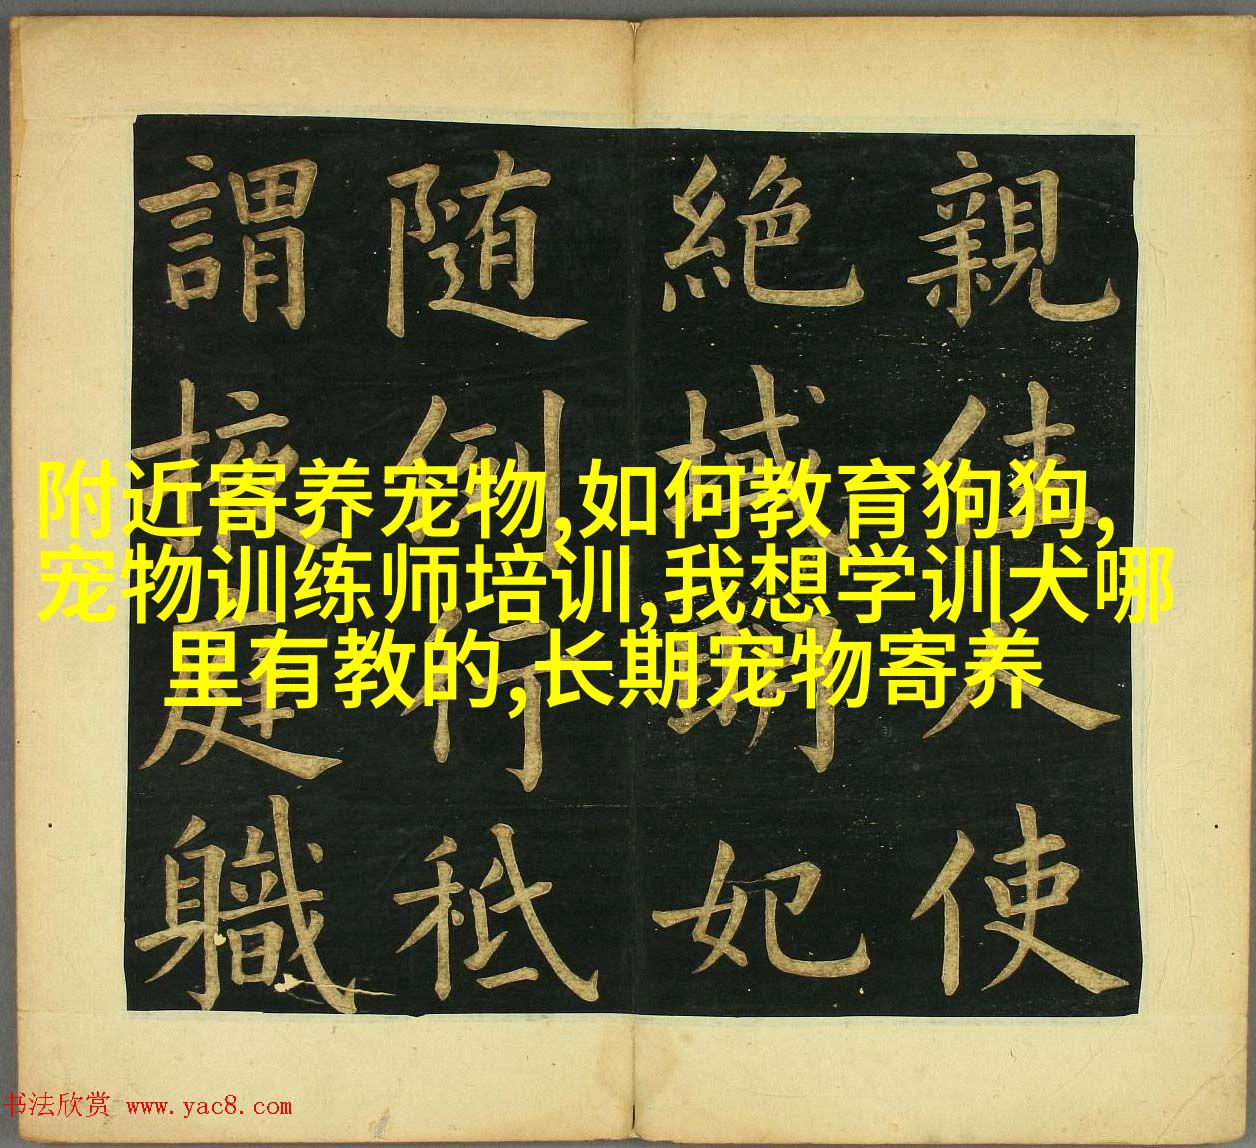 親佳人使
絶域明妃
随例行秪
謂掖庭職
附近寄养宠物,如何教育狗狗,
宠物训练师培训,我想学训犬哪
里有教的,长期宠物寄养
书法欣赏 www.yac8.com